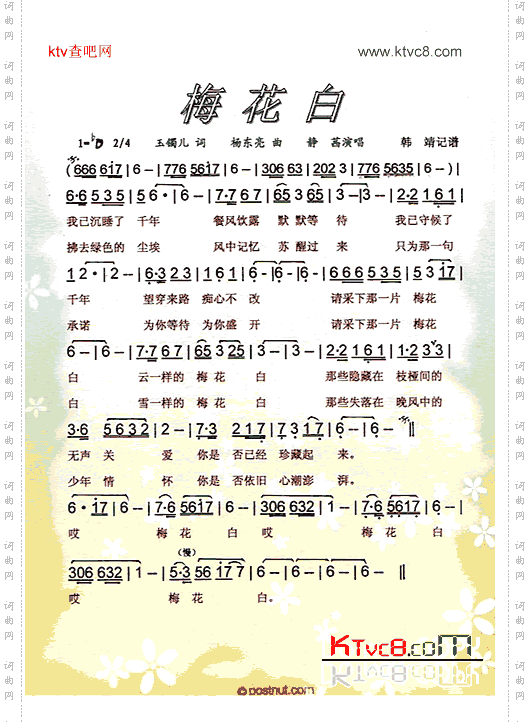 ktv查吧网 www.ktvc8.com
梅花白
1=♭D 2/4 玉镯儿 词 杨东亮 曲 静 茗演唱 韩 靖记谱
(666 617|6·|-|776 5617|6·|-|306 63|202 3|776 5635|6-|6-|)
6·6 5 3 5|1 2·|2-|7·7 6 7|6·5 3|5-|2·2 1 6 1|
我已沉睡了 千年 餐风饮露 默默等 待 我已守候了
拂去绿色的 尘埃 风中记忆 苏 醒过 来 只为那一句
1 2·|2-|6·3 2 3|1 6 1|6-|6-|6-|6 6 6 5 3 5|5 3 17|
千年 望穿来路 痴心不 改 请采下那一片 梅花
承诺 为你等待 为你盛 开 请采下那一片 梅花
6-|6-|7·7 6 7|65 3 25|3-|3-|2·2 1 6 1|1·2 3 3|
白 云一样的 梅 花 白 那些隐藏在 枝桠间的
白 雪一样的 梅 花 白 那些失落在 晚风中的
3·6 5 6 3 2|2-|2·3 2 1 7|7 3 17|6-|6-‖
无声 关 爱 你是 否已经 珍藏起 来。
少年 情 怀 你是 否依旧 心潮澎 湃。
6·17|6-|7·6 5617|6-|306 632|1-|7·6 5617|6-|
哎 梅 花 白 哎 梅 花 白
(慢)
306 632|1-|5·3 56 177|6-|6-|6-|6-‖
哎 梅 花 白。
KTvc8.com
© postnut.com
词曲网
词曲网
词曲网
词曲网
词曲网
词曲网
词曲网
词曲网
词曲网
词曲网
词曲网
词曲网